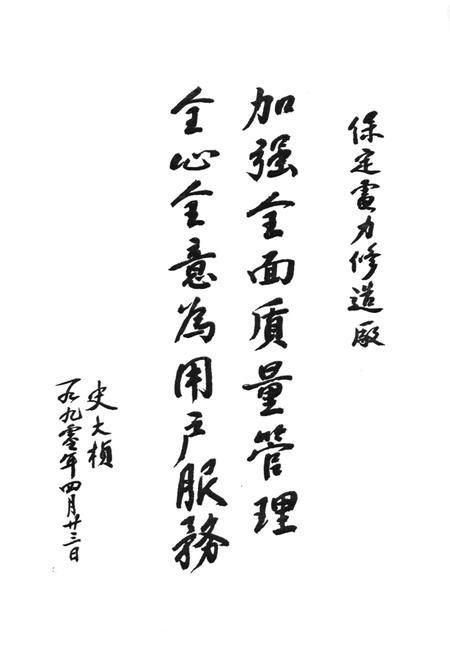 保定電力修造廠
加强全面质量管理
全心全意為用户服務
史大楨
一九九零年四月廿三日